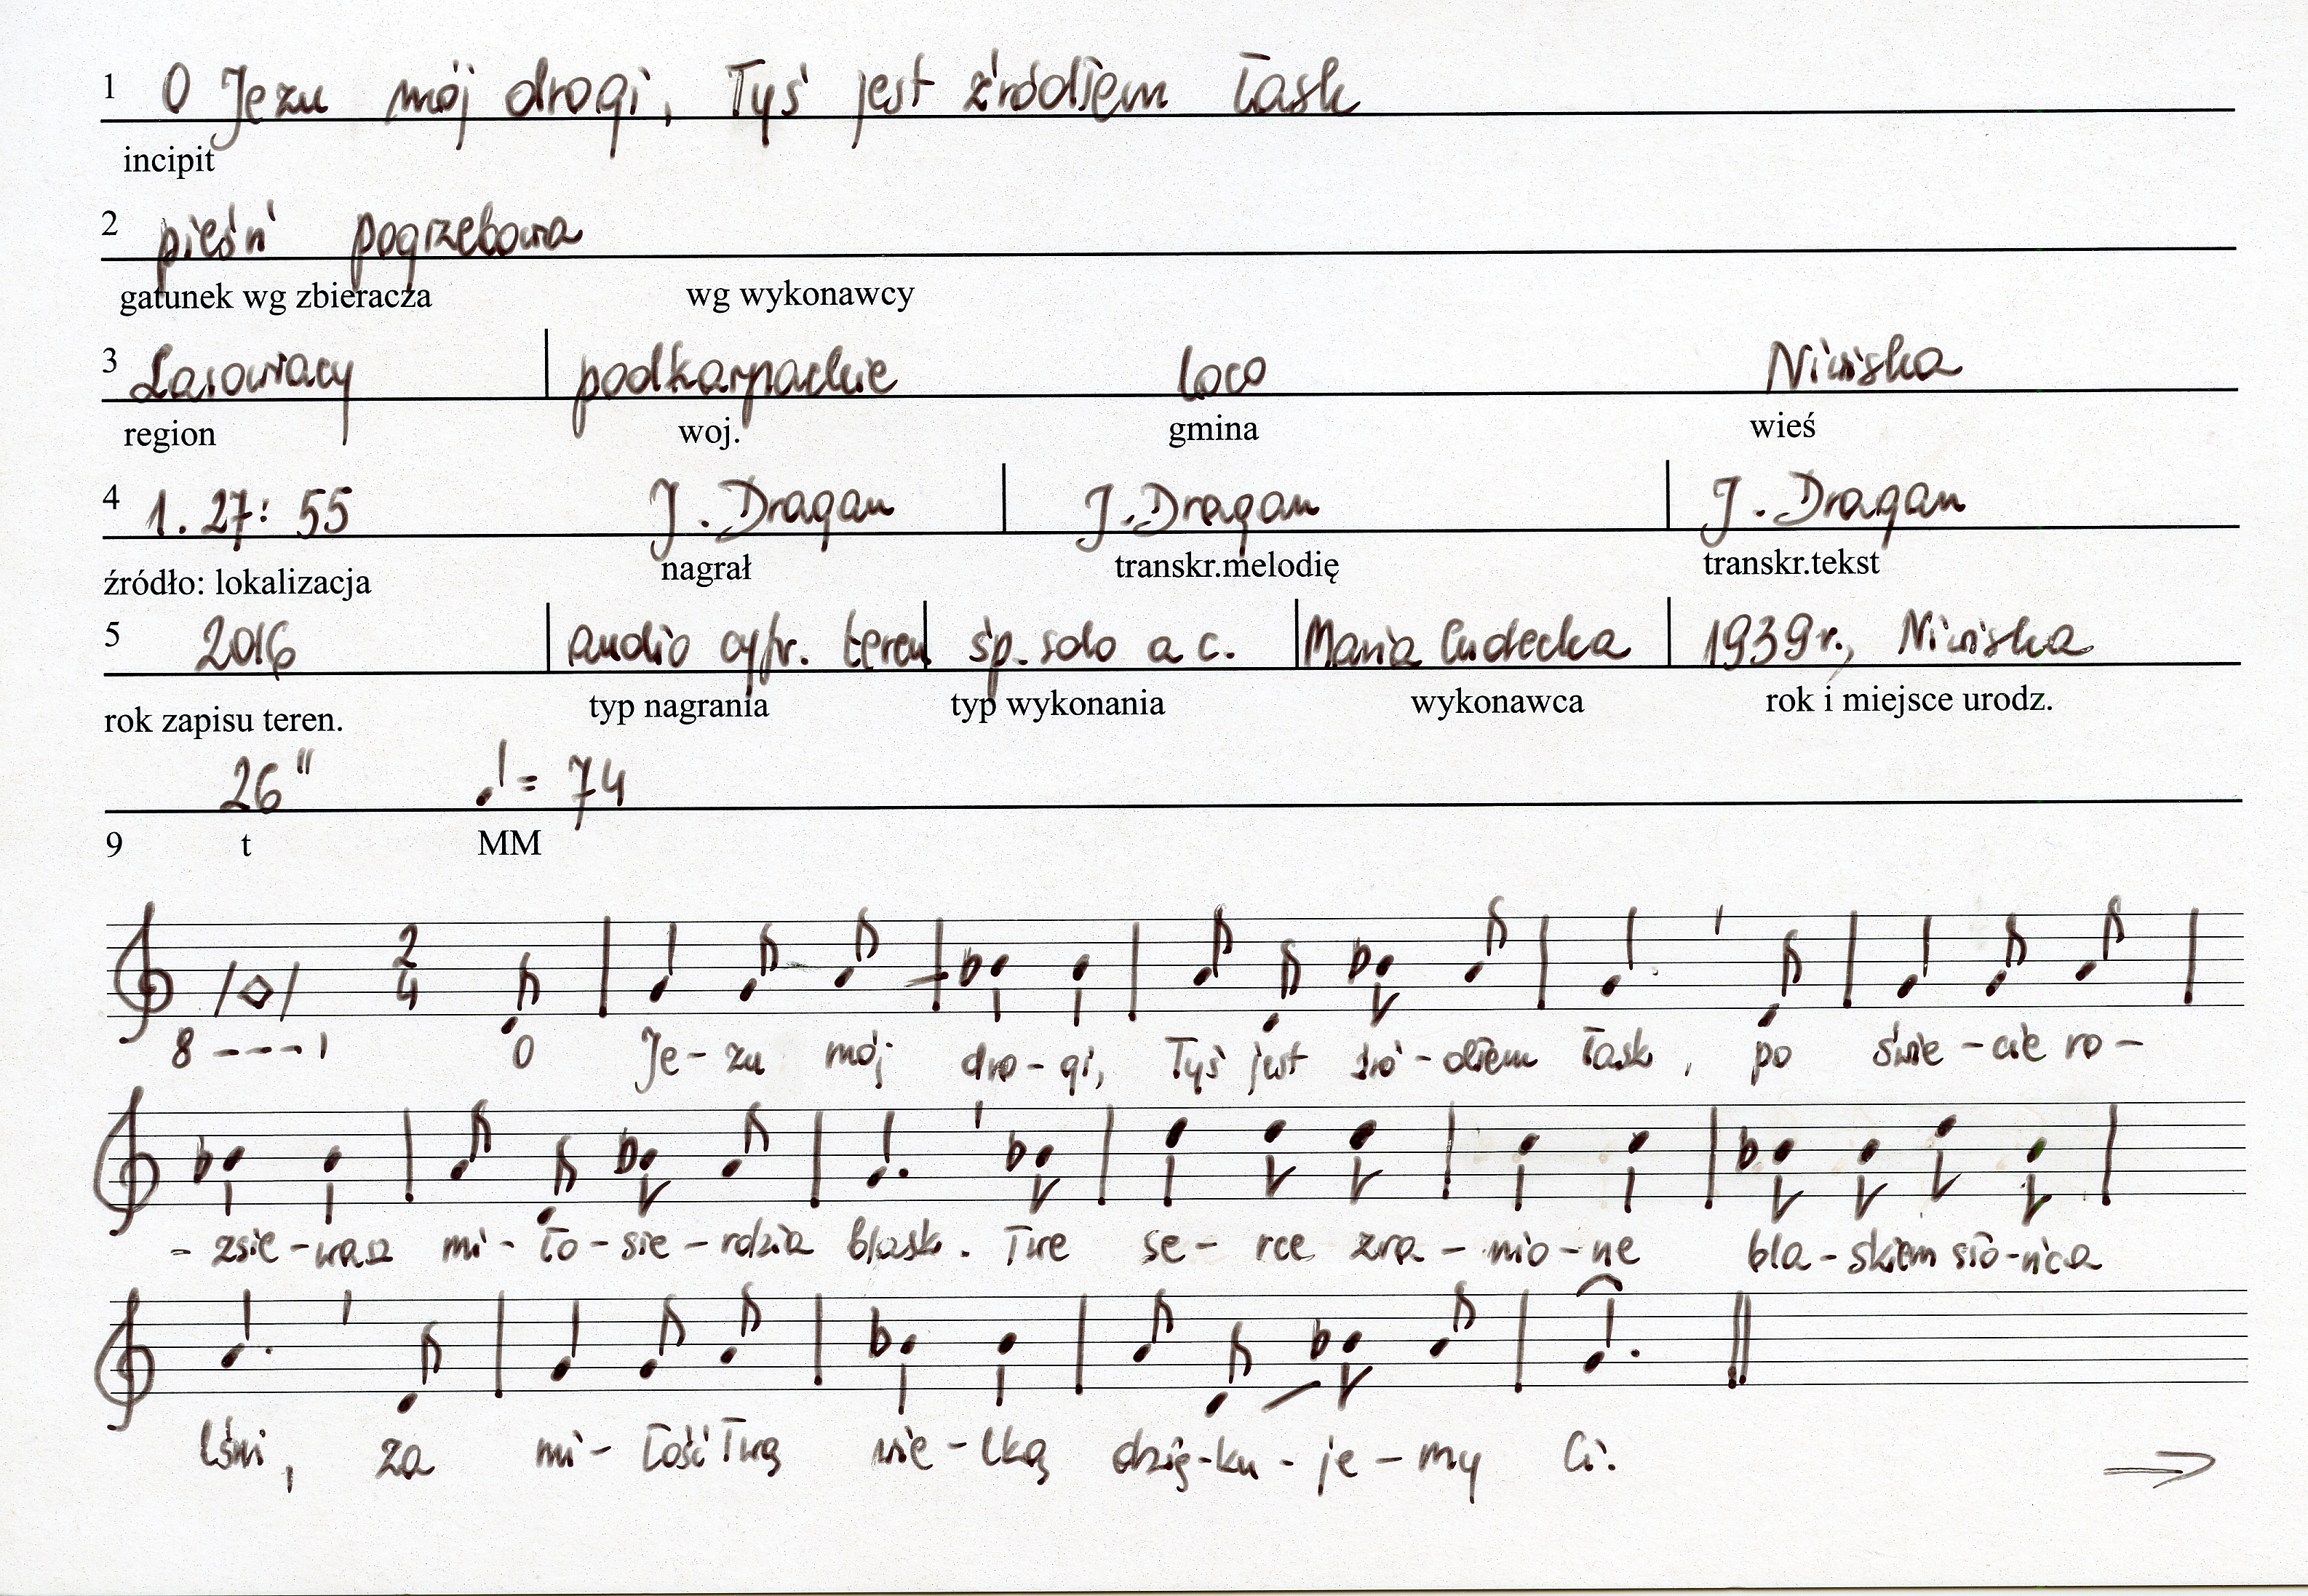 1 O Jezu mój drogi, Tyś jest źródłem łask
incipit
2 pieśń pogrzebowa
gatunek wg zbieracza wg wykonawcy
3 Lasowiacy podkarpackie loco Niwiska
region woj. gmina wieś
4 1. 27: 55 J. Dragan J. Dragan J. Dragan
źródło: lokalizacja nagrał transkr.melodię transkr.tekst
5 2016 audio cyfr. teren śp. solo a c. Maria Cudecka 1939 r., Niwiska
rok zapisu teren. typ nagrania typ wykonania wykonawca rok i miejsce urodz.
26" = 74
9 t MM
2
4
8 - - - - 1 O Je - zu mój dro - gi, Tyś jest źró - dłem łask, po świe - cie ro -
- zsie - wasz mi - ło - sie - rdzia blask. Twe se - rce zra - nio - ne bla - skiem sło - ńca
lśni, za mi - łość Twą wie - lką dzię - ku - je - my Ci. →